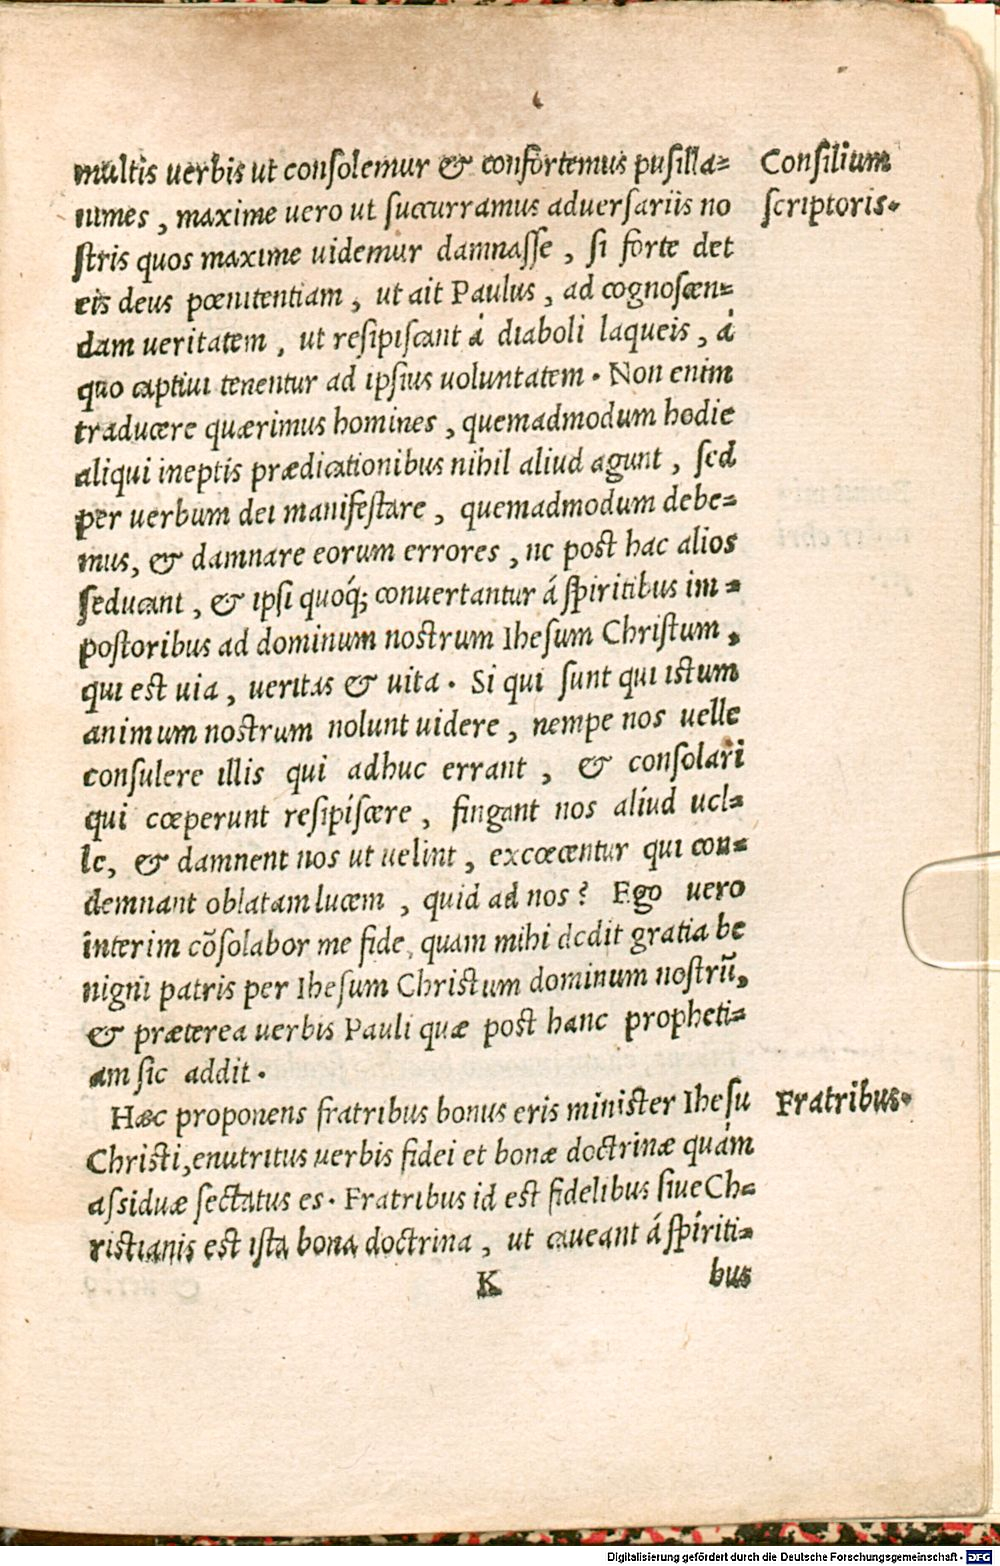 multis uerbis ut conſolemur & confortemus puſilla=
nimes, maxime uero ut ſuccurramus aduerſariis no
ſtris quos maxime uidemur damnaſſe, ſi forte det
eis deus pœnitentiam, ut ait Paulus, ad cognoſcen=
dam ueritatem, ut reſipiſcant á diaboli laqueis, á
quo captiui tenentur ad ipſius uoluntatem. Non enim
traducere quærimus homines, quemadmodum hodie
aliqui ineptis prædicationibus nihil aliud agunt, ſed
per uerbum dei manifeſtare, quemadmodum debe=
mus, & damnare eorum errores, ne poſt hac alios
ſeducant, & ipſi quoq́; conuertantur á ſpiritibus im=
poſtoribus ad dominum noſtrum Iheſum Chriſtum,
qui eſt uia, ueritas & uita. Si qui ſunt qui iſtum
animum noſtrum nolunt uidere, nempe nos uelle
conſulere illis qui adhuc errant, & conſolari
qui cœperunt reſipiſcere, fingant nos aliud uel=
le, & damnent nos ut uelint, excœcentur qui con=
demnant oblatam lucem, quid ad nos? Ego uero
interim cõſolabor me fide, quam mihi dedit gratia be
nigni patris per Iheſum Chriſtum dominum noſtrũ,
& præterea uerbis Pauli quæ poſt hanc propheti=
am ſic addit.
Hæc proponens fratribus bonus eris miniſter Iheſu
Chriſti, enutritus uerbis fidei et bonæ doctrinæ quám
aſſiduæ ſectatus es. Fratribus id eſt fidelibus ſiue Ch=
riſtianis eſt iſta bona doctrina, ut caueant á ſpiriti=
K
bus
Conſilium
ſcriptoris.
Fratribus.
Digitalisierung gefördert durch die Deutsche Forschungsgemeinschaft - DFG